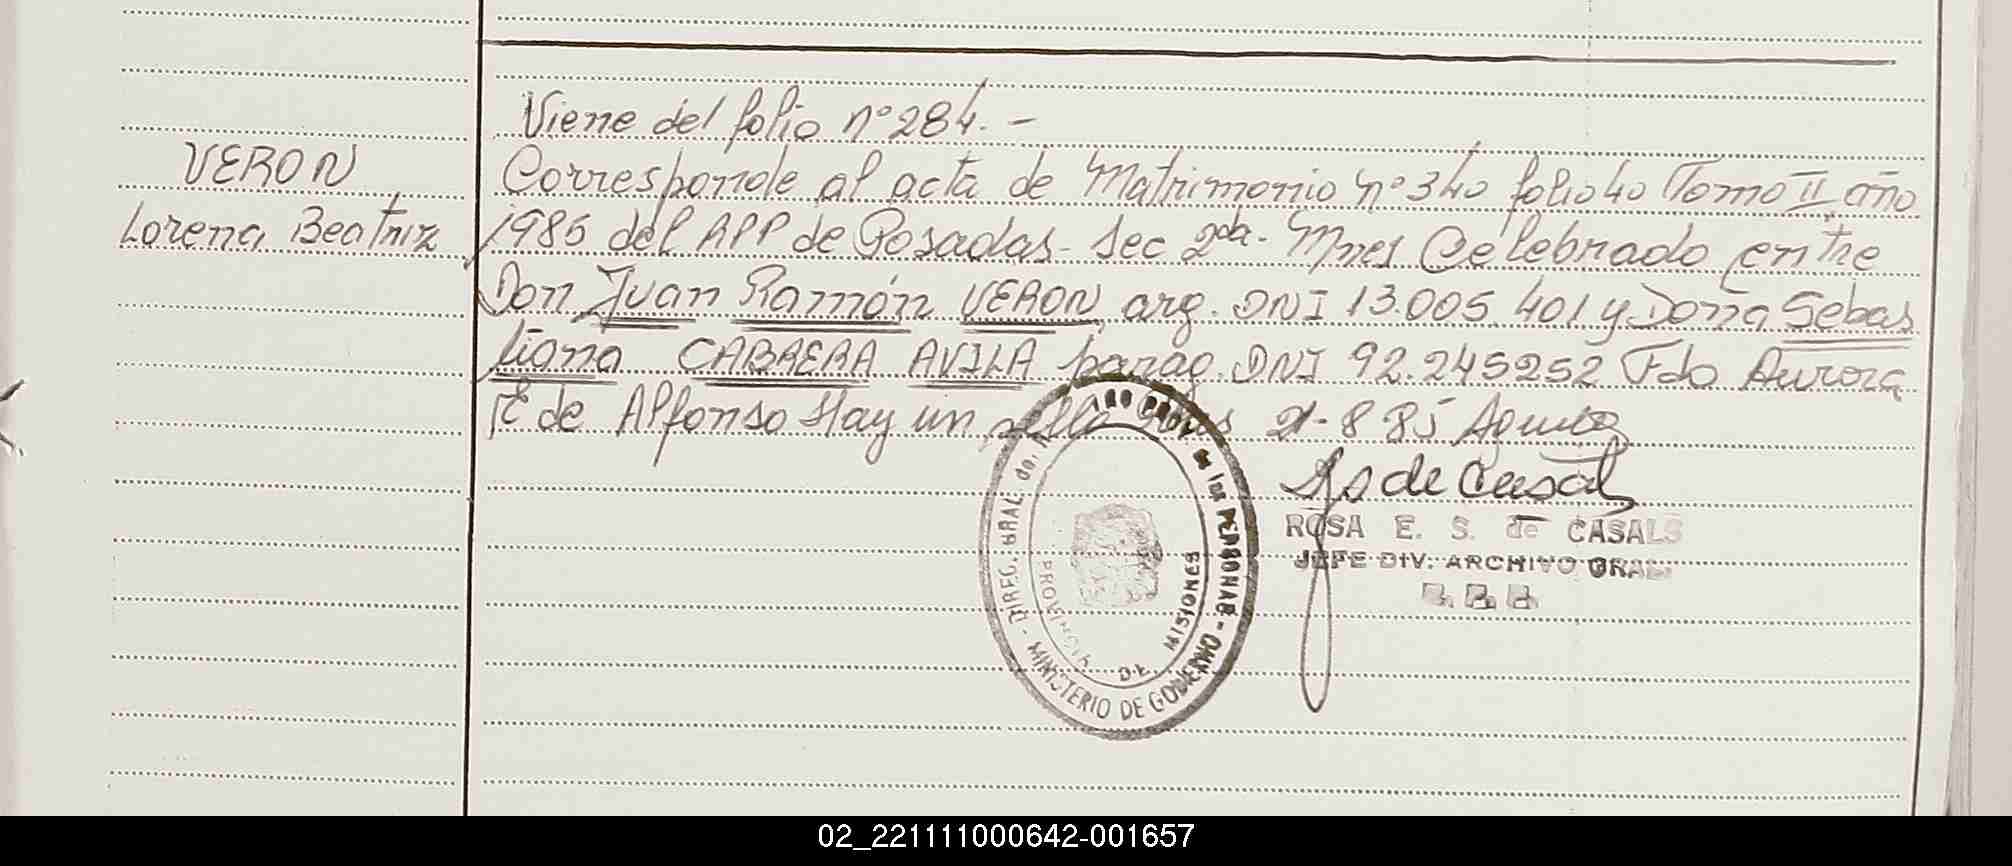 Viene del folio nº 284. -
VERON
Lorena Beatriz
Corresponde al acta de Matrimonio nº 340 folio 40 Tomo II año
1985 del RPP de Posadas - Sec 2da - Mnes Celebrado entre
Don Juan Ramón VERON, arg. DNI 13.005.401 y Doña Sebas
tiana CABRERA AVILA parag. DNI 92.245252 Fdo Aurora
de Alfonso Hay un sello 21-8-85
de Casals
ROSA E. S. de CASALS
JEFE DIV. ARCHIVO GRAL.
R. P. P.
DIREC. GRAL. del PROV. de las PERSONAS - MINISTERIO DE GOBIERNO -
PROVINCIA DE MISIONES
02_221111000642-001657